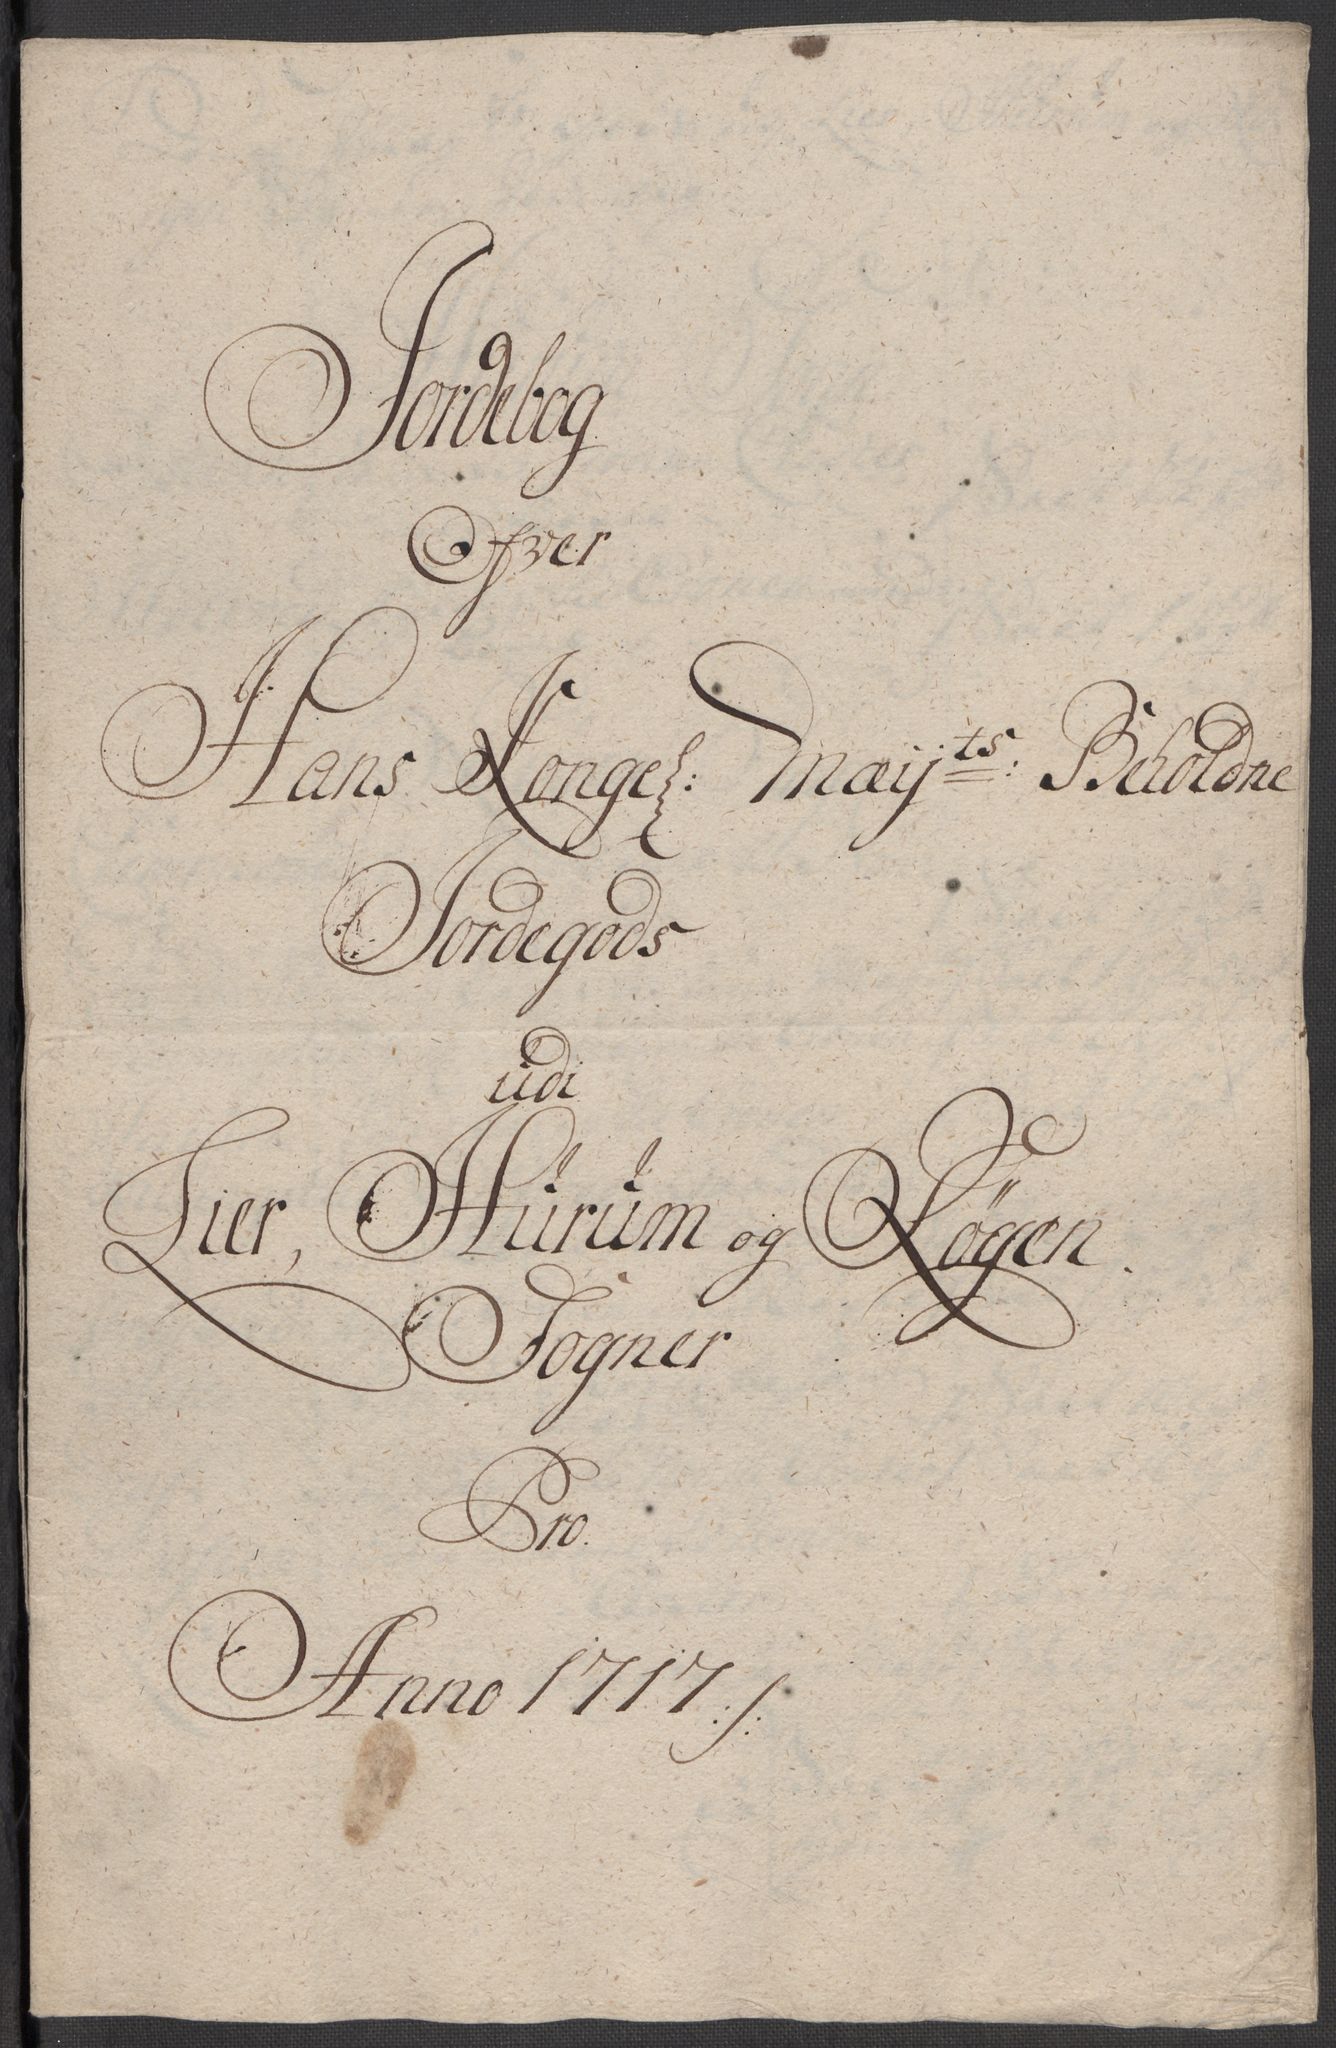 Jordebog
Ofver
Hans Kongel: Maÿ^ts: Beholdne
Jordegods
udi
Lier, Hurum og Røgen.
Sogner
Pro.
Anno 1717 /: